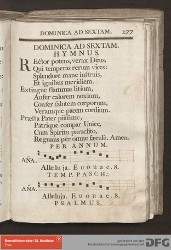 DOMINICA AD SEXTAM. 277
DOMINICA AD SEXTAM.
HYMNUS.
REctor potens, verax Deus,
Qui temperas rerum vices:
Splendore mane instruis,
Et ignibus meridiem.
Extingue flammas litium,
Aufer calorem noxium,
Confer salutem corporum,
Veramque pacem cordium.
Præsta Pater piissime,
Patrique compar Unice,
Cum Spiritu paraclito,
Regnans per omne sæculũ. Amen.
PER ANNUM.
AÑA.
Alleluja. Evovae. 8.
TEMP. PASCH.
AÑA.
Alleluja. Evovae. 8.
PSALMUS.
DFG